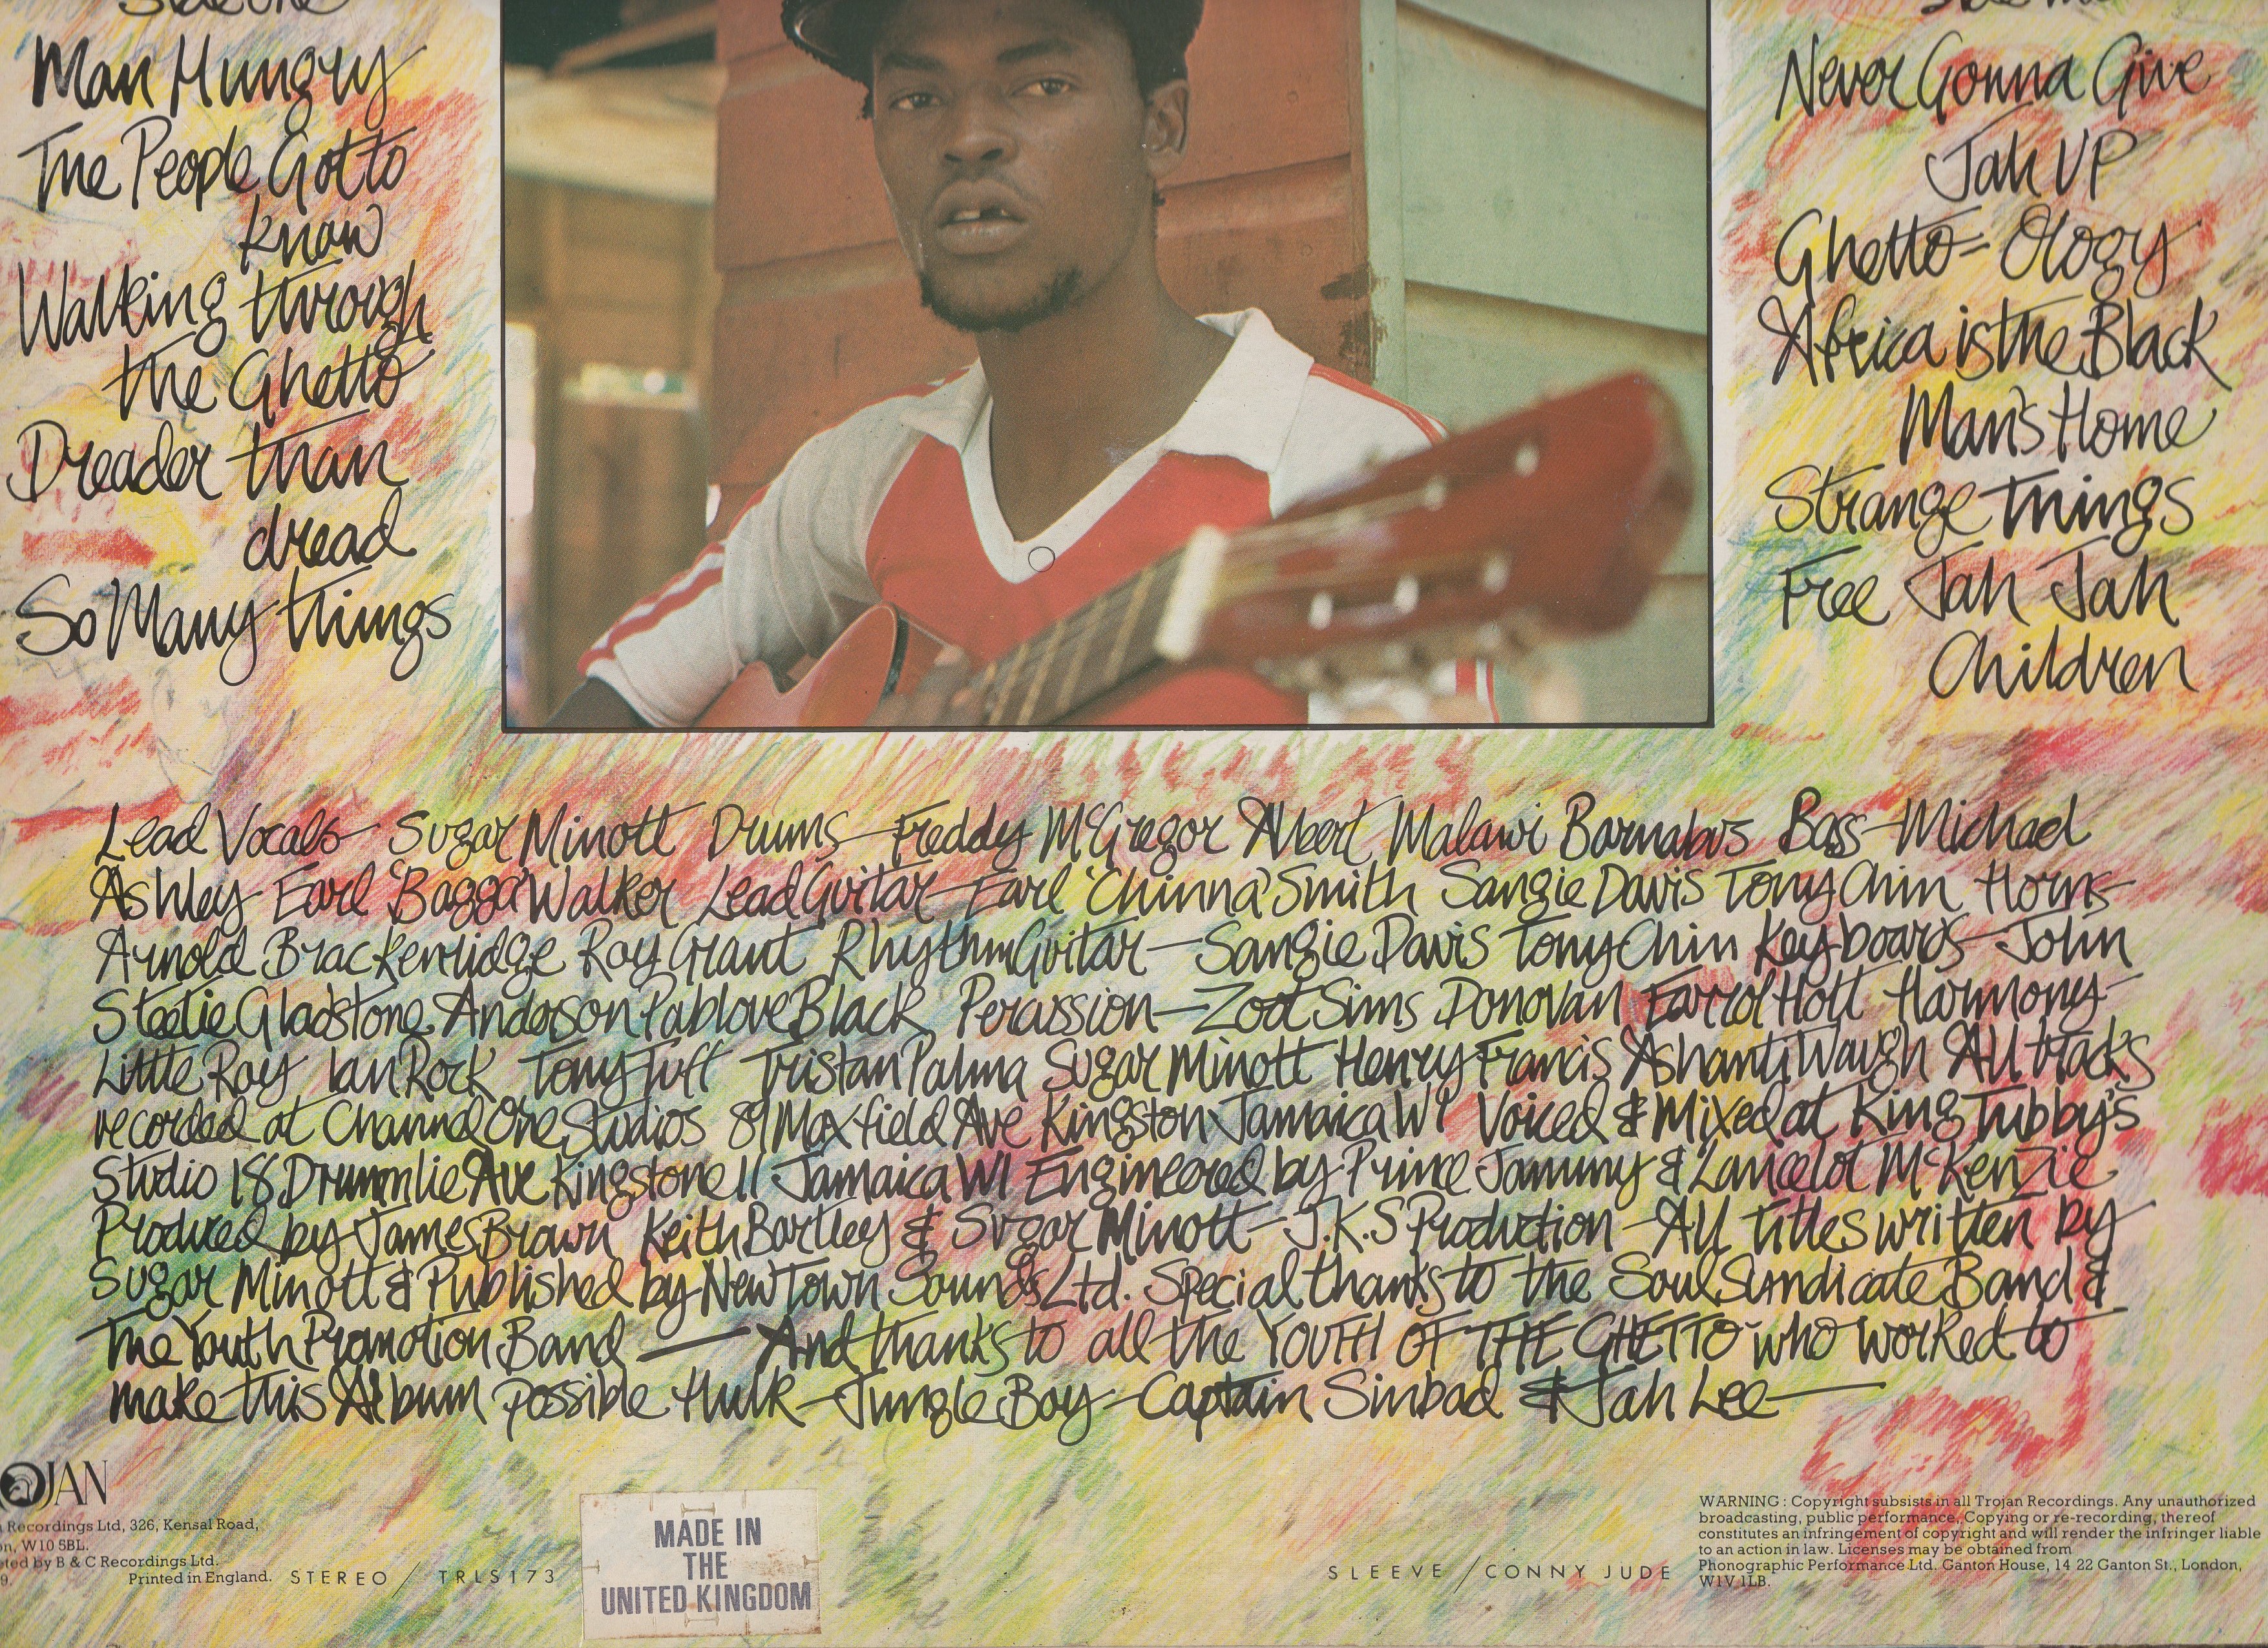 Side One
Man Hungry
The People Gotto
know
Walking through
the Ghetto
Dreader than
dread
So Many things
Never Gonna Give
Jah UP
Ghetto-Ology
Africa is the Black
Man's Home
Strange things
Free Jah Jah
Children
Lead Vocals - Sugar Minott Drums - Freddy McGregor Albert Malawi Barnabus Bass - Michael
Ashley Earl 'Bagga' Walker Lead Guitar - Earl 'Chinna' Smith Sangie Davis Tony Chin Horns -
Arnold Brackenridge Ray Grant Rhythm Guitar - Sangie Davis Tony Chin Keyboards - John
Steelie Gladstone Anderson Pablove Black Percussion - Zoot Sims Donovan Farrol Hott Harmony -
Little Ray Ian Rock Tony Tuff Tristan Palma Sugar Minott Henry Francis Ashanti Waugh All tracks
recorded at Channel One Studios 89 Maxfield Ave Kingston Jamaica WI Voiced & Mixed at King Tubby's
Studio 18 Drummlie Ave Kingstone 11 Jamaica WI Engineered by Prince Jammy & Lancelot McKenzie
Produced by James Brown Keith Bartley & Sugar Minott - J.K.S Production - All titles written by
Sugar Minott & Published by New Town Sounds Ltd. Special thanks to the Soul Syndicate Band &
The Youth Promotion Band — And thanks to all the YOUTH OF THE GHETTO who worked to
make this Album possible Hulk - Jungle Boy - Captain Sinbad & Jah Lee —
OJAN
Recordings Ltd, 326, Kensal Road,
on, W10 5BL.
ted by B & C Recordings Ltd.
9. Printed in England. STEREO / TRLS173
MADE IN
THE
UNITED KINGDOM
SLEEVE / CONNY JUDE
WARNING : Copyright subsists in all Trojan Recordings. Any unauthorized
broadcasting, public performance, Copying or re-recording, thereof
constitutes an infringement of copyright and will render the infringer liable
to an action in law. Licenses may be obtained from
Phonographic Performance Ltd. Ganton House, 14 22 Ganton St., London,
W1V 1LB.